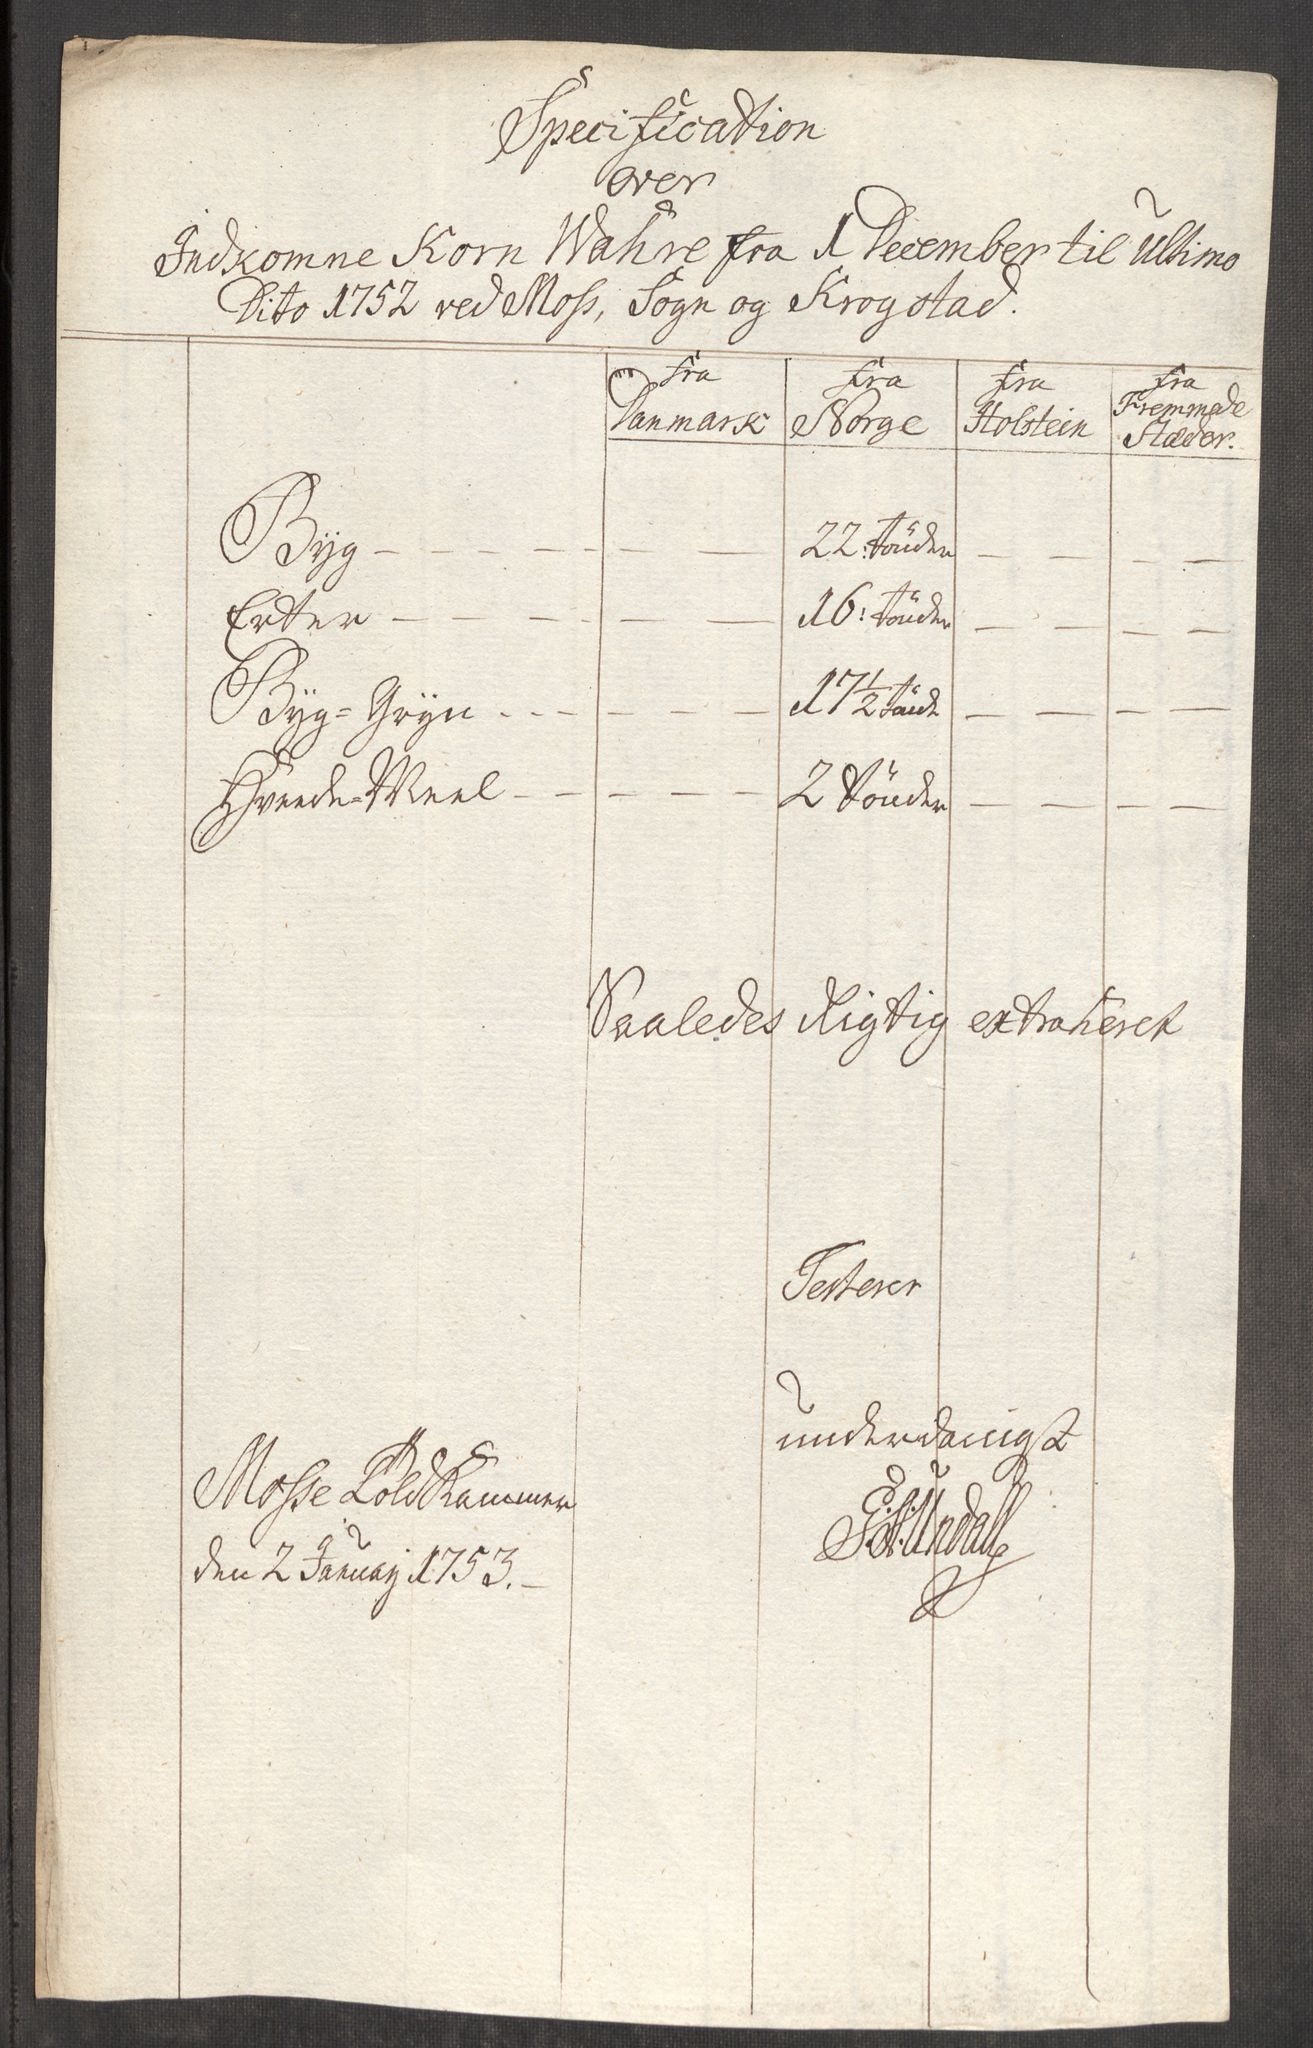 Specification
over
Indkomne Korn Wahre fra 1 December til Ultimo
Dito 1752 ved Moss, Sogn og Krogstad.
fra Danmark fra Norge fra Holstein fra Fremmede Stæder.
Byg - - - - - - 22: tönder - - - -
Erter - - - - - - 16: tönder - - - -
Byg= Gryn - - - - - - 17 1/2 tönde - - - -
Hvede=Meel - - - - - - 2 tönder - - - -
Saaledes Rigtig extraheret
Testerer
underdanigst
Mosse Told Kammer
den 2 Januarij 1753.-